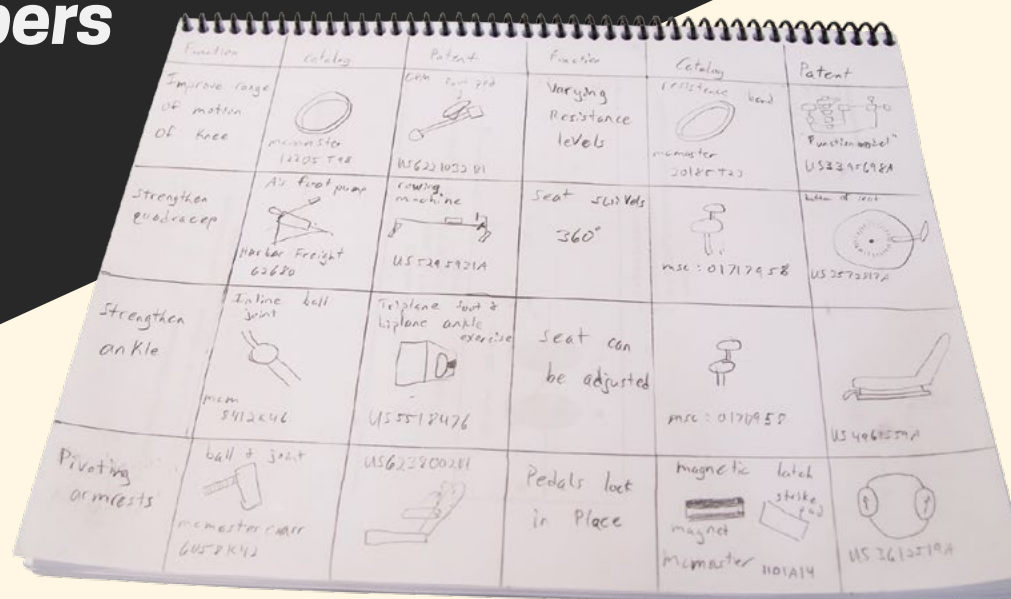 pers
Function
Catalog
Patent
Function
Catalog
Patent
Improve range
of motion
of Knee
mcmaster
Varying
Resistance
levels
resistance band
mcmaster
20185T23
"Function model"
US3395698A
Strengthen
quadracep
Air foot pump
Harbor Freight
62680
rowing
machine
US5295931A
Seat swivels
360°
msc: 01717958
bottom of seat
Strengthen
ankle
Inline ball
joint
mcm
8412K46
Triplane foot &
biplane ankle
exercise
US5518476
Seat can
be adjusted
US4961559A
Pivoting
armrests
ball & joint
mcmaster carr
6058K42
Pedals lock
in Place
magnetic latch
magnet
strike
pad
mcmaster 1101A14
US3612519A